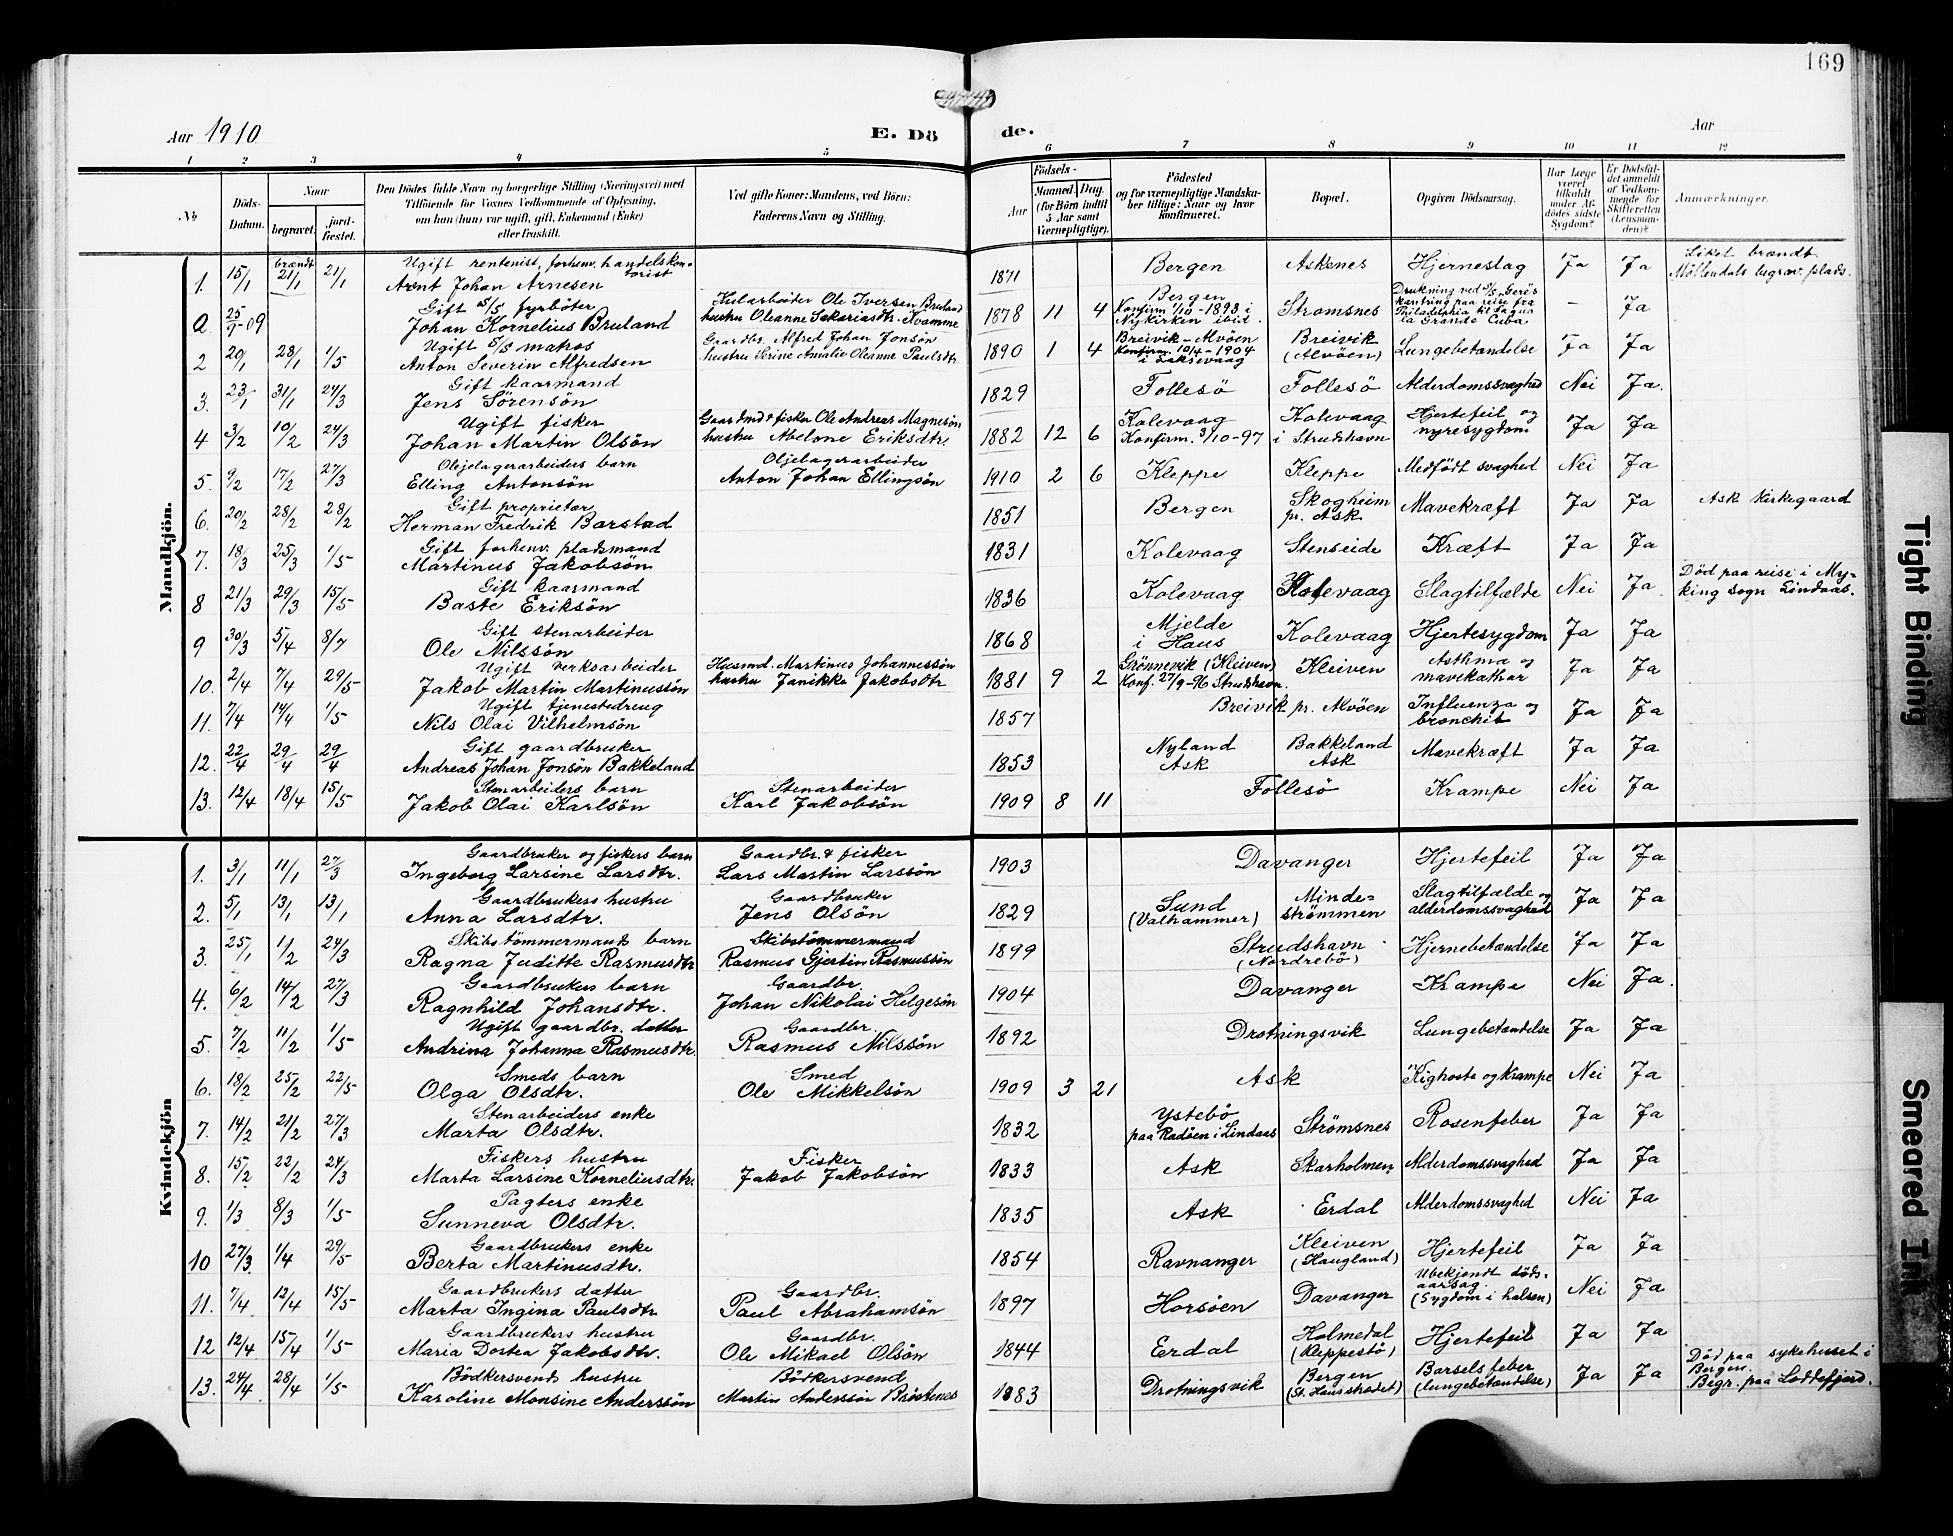 169
Aar 1910
E. Dö de.
Aar
1 2 3 4 5 6 7 8 9 10 11 12
№ Döds-Datum. Naar begravet. jord-fæstet. Den Dödes fulde Navn og borgerlige Stilling (Næringsvei) med Tilföiende for Voxnes Vedkommende af Oplysning, om hun (hun) var ugift, gift, Enkemand (Enke) eller fraskilt. Ved gifte Koner: Mandens, ved Börn: Faderens Navn og Stilling. Födsels- Aar Maaned. Dag. (for Börn indtil 5 Aar samt Værnepligtige). Födested og for værnepligtige Mandskaber tillige: Naar og hvor konfirmeret. Bopæl. Opgiven Dödsaarsag. Har Læge været tilkaldt under Afdödes sidste Sygdom? Er Dödsfaldet anmeldt af Vedkommende for Skifteretten (Lensmanden)? Anmærkninger.
Mandkjön.
1. 15/1 brændt 21/1 21/1 Ugift rentenist, forhenv. handelskontorist Arnt Johan Arnesen 1871 Bergen Askenes Hjerneslag Ja Ja Liket brændt Möllendals begrav. plads.
a. 25/9-09 Gift s/s fyrböter Johan Kornelius Bruland Kularbeider Ole Iversen Bruland hustru Oleanne Sakariasdtr. Kvamme 1878 11 4 Bergen Konfirm 1/10-1893 i Nykirken ibid. Stromsnes Drukning ved s/s Gerös kantring paa reise fra Philadelphia til Sagua la Grande Cuba – Ja
2 20/1 28/1 1/5 Ugift s/s matros Anton Severin Alfredsen Gaardbr. Alfred Johan Jonsön hustru Serine Amalie Oleanne Paulsdtr 1890 1 4 Breivik – Alvöen Konfirm. 10/4-1904 i Laksevaag Breivik (Alvöen) Lungebetændelse Ja Ja
3. 23/1 31/1 24/3 Gift kaarmand Jens Sörensön 1829 Follesö Follesö Alderdomssvaghed Nei Ja.
4 3/2 10/2 24/3 Ugift fisker Johan Martin Olsön Gaardmd & fisker Ole Andreas Magnesön hustru Abelone Eriksdtr. 1882 12 6 Kolevaag Konfirm. 3/10-97 Kolevaag i Strudshavn Hjertefeil og nyresygdom Ja Ja
5. 9/2 17/2 27/3 Oljelagerarbeiders barn Elling Antonsön Oljelagerarbeider Anton Johan Ellingsön 1910 2 6 Kleppe Kleppe Medfödt svaghed Nei Ja
6. 20/2 28/2 28/2 Gift proprietær Herman Fredrik Barstad 1851 Bergen Skogheim pr. Ask Mavekræft Ja Ja Ask kirkegaard
7. 18/3 25/3 1/5 Gift forhenv. pladsmand Martinus Jakobsön 1831 Kolevaag Stenseide Kræft Ja Ja
8 21/3 29/3 15/5 Gift kaarmand Baste Eriksön 1836 Kolevaag Kolevaag Slagtilfælde Nei Ja Död paa reise i Myking sogn Lindaas.
9 30/3 5/4 8/7 Gift stenarbeider Ole Nilssön 1868 Mjelde i Haus Kolevaag Hjertesygdom Ja Ja
10. 2/4 7/4 29/5 Ugift verksarbeider Jakob Martin Martinussön Husmd. Martinus Johannessön hustru Janikke Jakobsdtr 1881 9 2 Grönnevik (Kleiven) Konf. 27/9-96 Strudshavn. Kleiven Asthma og mavekathar Ja Ja
11. 7/4 14/4 1/5 Ugift tjenestedreng Nils Olai Vilhelmsön 1857 Breivik pr. Alvöen Influenza og bronchit Ja Ja
12. 22/4 29/4 29/4 Gift gaardbruker Andreas Johan Jonsön Bakkeland 1853 Nyland Ask Bakkeland Ask Mavekræft Ja Ja
13. 12/4 18/4 15/5 Stenarbeiders barn Jakob Olai Karlsön Stenarbeider Karl Jakobsön 1909 8 11 Follesö Krampe Nei Ja
Kvindekjön
1. 3/1 11/1 27/3 Gaardbruker og fiskers barn Ingeborg Larsine Larsdtr. Gaardbr. & fisker Lars Martin Larssön 1903 Davanger Hjertefeil Ja Ja
2. 5/1 13/1 13/1 Gaardbrukers hustru Anna Larsdtr. Gaardbruker Jens Olsön 1829 Sund (Valhammer) Minde-strömmen Slagtilfælde og alderdomssvaghed Ja Ja
3. 25/1 1/2 24/3 Skibstömmermands barn Ragna Juditte Rasmusdtr Skibstömmermand Rasmus Gjertin Rasmussön 1899 Strudshavn (Nordrebö) Hjernebetændelse Ja Ja
4. 6/2 14/2 27/3 Gaardbrukers barn Ragnhild Johansdtr. Gaardbr. Johan Nikolai Helgesön 1904 Davanger Krampe Nei Ja.
5. 7/2 11/2 1/5 Ugift gaardbr. datter Andrina Johanna Rasmusdtr. Gaardbr. Rasmus Nilssön 1892 Drotningsvik Lungebetændelse Ja Ja
6. 18/2 25/2 22/5 Smeds barn Olga Olsdtr. Smed Ole Mikkelsön 1909 3 21 Ask Kighoste og Krampe Nei Ja
7. 14/2 21/2 27/3 Stenarbeiders enke Marta Olsdtr. 1832 Ystebö paa Radöen i Lindaas Strömsnes Rosenfeber Ja Ja
8. 15/2 22/2 24/3 Fiskers hustru Marta Larsine Korneliusdtr. Fisker Jakob Jakobsön 1833 Ask Skarholmen Alderdomssvaghed Ja Ja
9. 1/3 8/3 1/5 Pagters enke Sunneva Olsdtr. 1835 Ask Erdal Alderdomssvaghed Nei Ja
10 27/3 1/4 29/5 Gaardbrukers enke Berta Martinusdtr. 1854 Ravnanger Kleiven (Haugland) Hjertefeil Ja Ja
11. 7/4 12/4 15/5 Gaardbrukers datter Marta Ingina Paulsdtr Gaardbr. Paul Abrahamsön 1897 Horsöen Davanger Ubekjendt döds-aarsag. (Sygdom i halsen) Nei Ja
12 12/4 15/4 1/5 Gaardbrukers hustru Maria Dortea Jakobsdtr. Gaardbr. Ole Mikael Olsön 1844 Erdal Holmedal (Kleppestö) Hjertefeil Ja Ja
13. 24/4 28/4 1/5 Bödkersvends hustru Karoline Monsine Anderssön Bödkersvend Martin Anderssön 1883 Drotningsvik Bergen (St. Hansstrædet) Barselsfeber (lungebetændelse) Ja Ja Död paa sykehuset i Bergen. Begr. paa Loddefjord.
Tight Binding
Smeared Ink